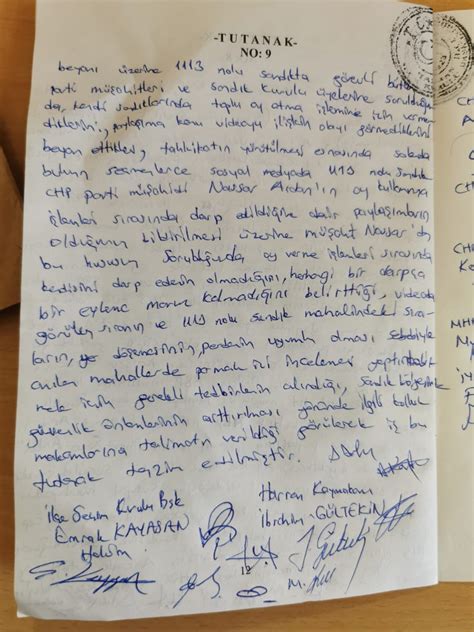 -TUTANAK-
NO: 9
beyanı üzerine 1113 nolu sandıkta görevli bütün
parti müşahitleri ve sandık kurulu üyelerine sorulduğun
da, kendi sandıklarında toplu oy atma işlemine izin verme
diklerini, paylaşıma konu videoya ilişkin olayı görmediklerini
beyan ettikleri, tahkikatın yürütülmesi esnasında salonda
bulunan seçmenlerce sosyal medyada 1113 nolu sandık
CHP parti müşahidi 'ın oy kullanma
işlemleri sırasında darp edildiğine dair paylaşımların
olduğunun bildirilmesi üzerine müşahit 'da
bu husus sorulduğunda oy verme işlemleri sırasında
kendisini darp edenin olmadığını, herhangi bir darpça
bir eyleme maruz kalmadığını belirttiği, videoda
görülen sıranın ve 1113 nolu sandık mahalindeki sıra-
ların, yer döşemesinin, perdenin uyumlu olması sebebiyle
anılan mahallerde parmak izi incelemesi yaptırıla
mak için gerekli tedbirlerin alındığı, sandık bölgesinde
güvenlik önlemlerinin arttırılması yönünde ilgili kolluk
makamlarına talimatın verildiği görülerek iş bu
tutanak tanzim edilmiştir.
İlçe Seçim Kurulu Bşk
Emrah KAYASAN
Hakim
Harran Kaymakamı
İbrahim GÜLTEKİN
12